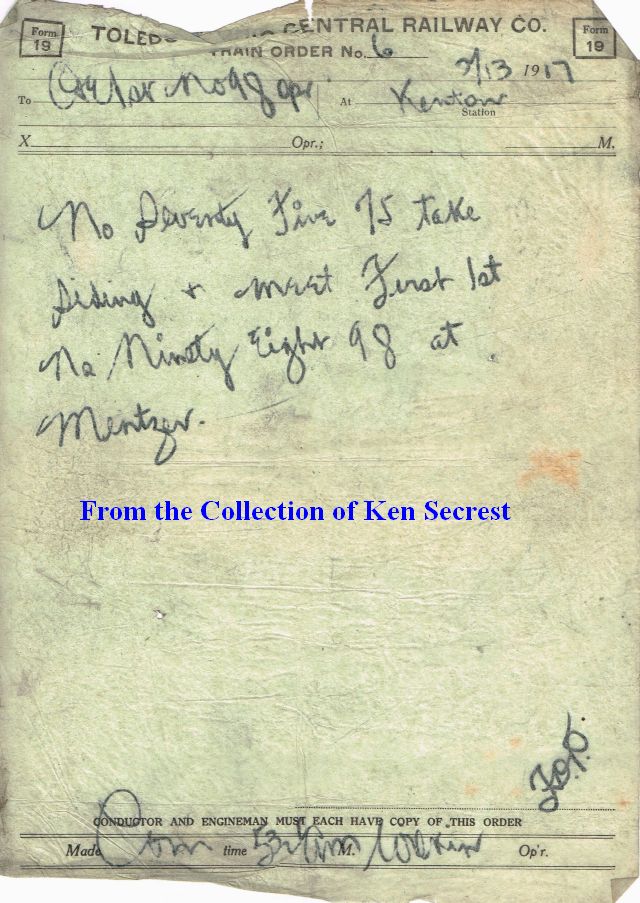 Form 19 TOLEDO CENTRAL RAILWAY CO. Form 19
TRAIN ORDER No. 6
3/13 1917
To No 98 opr At Kenton
Station
X Opr.; M.
No Seventy Five 75 take
Siding & meet First 1st
No Ninety Eight 98 at
Mentzer.
From the Collection of Ken Secrest
CONDUCTOR AND ENGINEMAN MUST EACH HAVE COPY OF THIS ORDER
Made Com time M. Op'r.